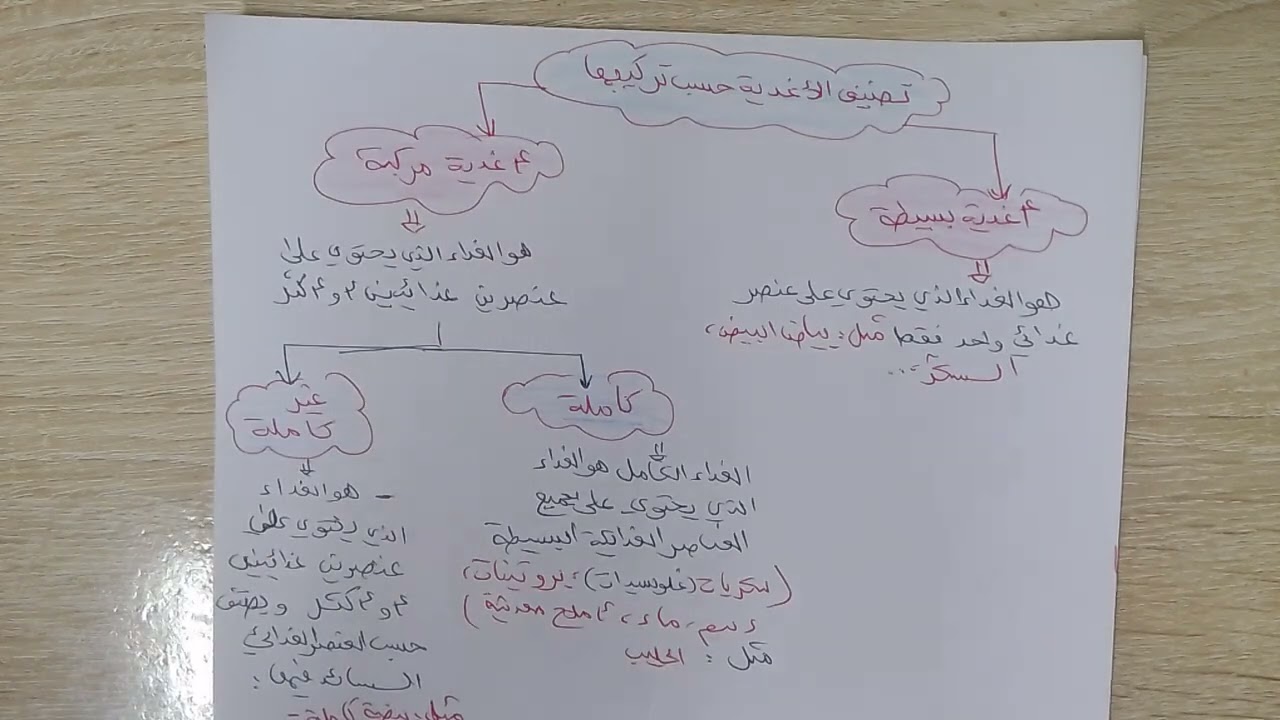 تصنيف الأغذية حسب تركيبها
أغذية بسيطة
هو الغذاء الذي يحتوي على عنصر
غذائي واحد فقط مثل: بياض البيض،
السكر،...
أغذية مركبة
هو الغذاء الذي يحتوي على
عنصرين غذائيين أو أكثر
كاملة
الغذاء الكامل هو الغذاء
الذي يحتوي على جميع
العناصر الغذائية البسيطة
(سكريات (غلوسيدات)، بروتينات،
دسم، ماء، أملاح معدنية)
مثل: الحليب
غير
كاملة
- هو الغذاء
الذي يحتوي على
عنصرين غذائيين
أو أكثر ويصنف
حسب العنصر الغذائي
السائد فيها:
مثل: بيضة كاملة -